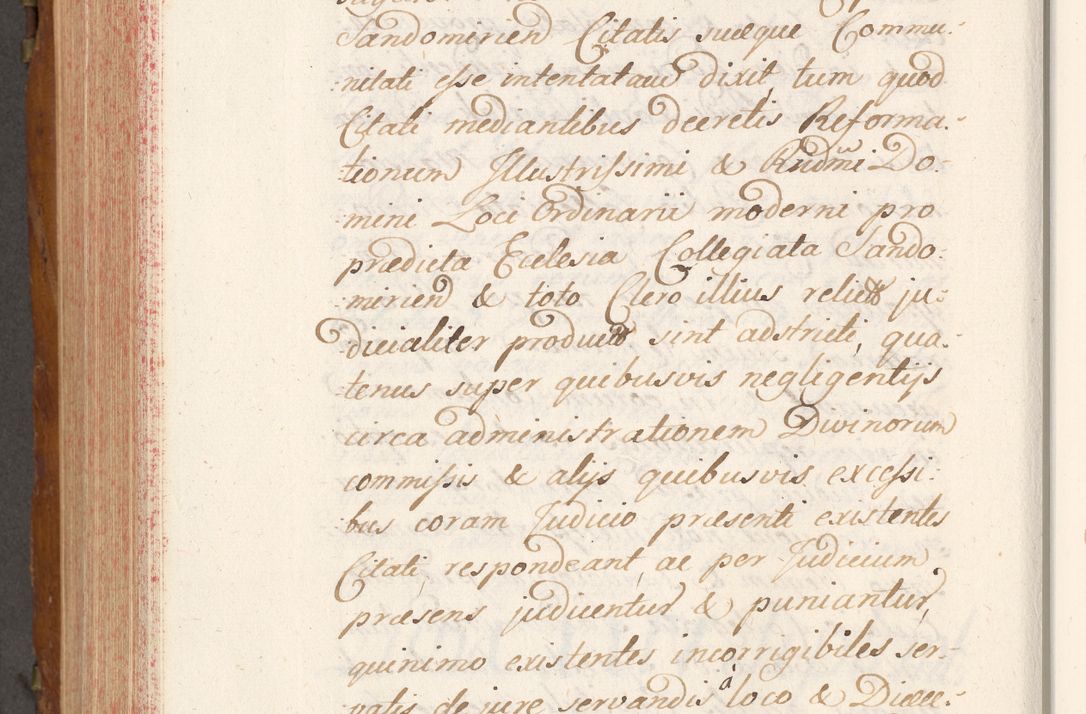 Sandomirien Citatis suæque Commu:
nitati esse intentatam dixit, tum quod
Citati mediantibus decretis Reforma:
tionum Illustrissimi & Rndmi Do:
mini Loci Ordinarii moderni pro
prædicta Ecclesia Collegiata Sando:
mirien & toto Clero illius relictis ju:
dicialiter productis sint adstricti, qua:
tenus super quibusvis negligentijs
circa administrationem Divinorum
commissis & alijs quibusvis excessi:
bus coram Judicio præsenti existentes
Citati, respondeant, ac per Judicium
præsens judicentur & puniantur,
quinimo existentes incorrigibiles ser:
vatis de jure servandis à loco & Diæce: